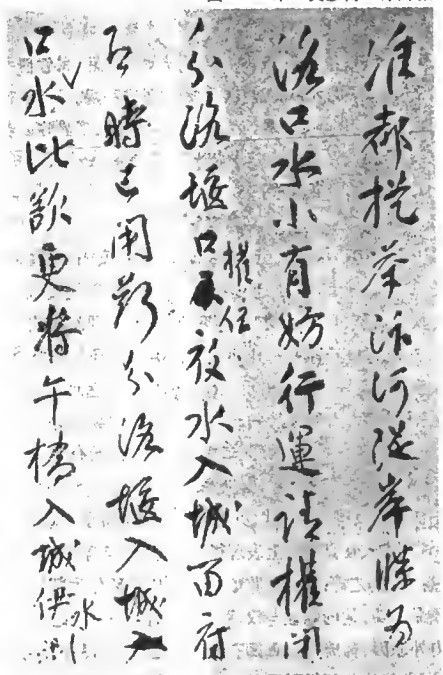 准都提舉汴河堤岸牒為
洛口水小有妨行運請權閉
分洛堰口權住放水入城留府
即時已閉斷分洛堰入城
口水比欲更將午橋入城伊川水